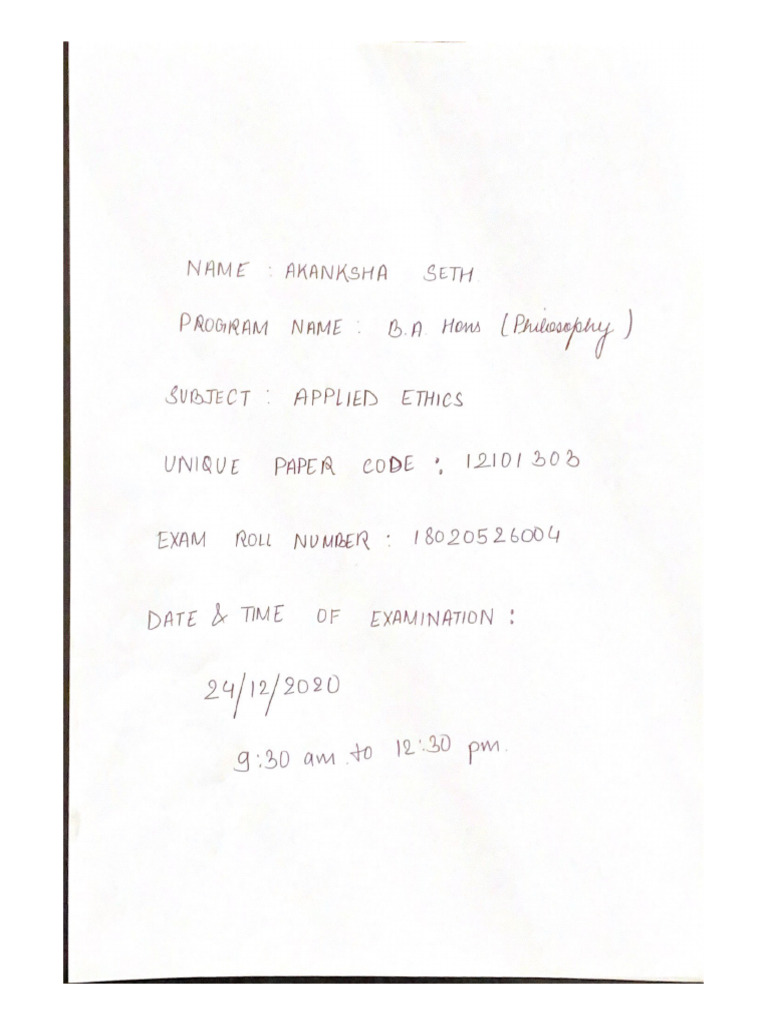 NAME : AKANKSHA SETH
PROGRAM NAME : B.A. Hons (Philosophy)
SUBJECT : APPLIED ETHICS
UNIQUE PAPER CODE : 12101303
EXAM ROLL NUMBER : 18020526004
DATE & TIME OF EXAMINATION :
24/12/2020
9:30 am to 12:30 pm.